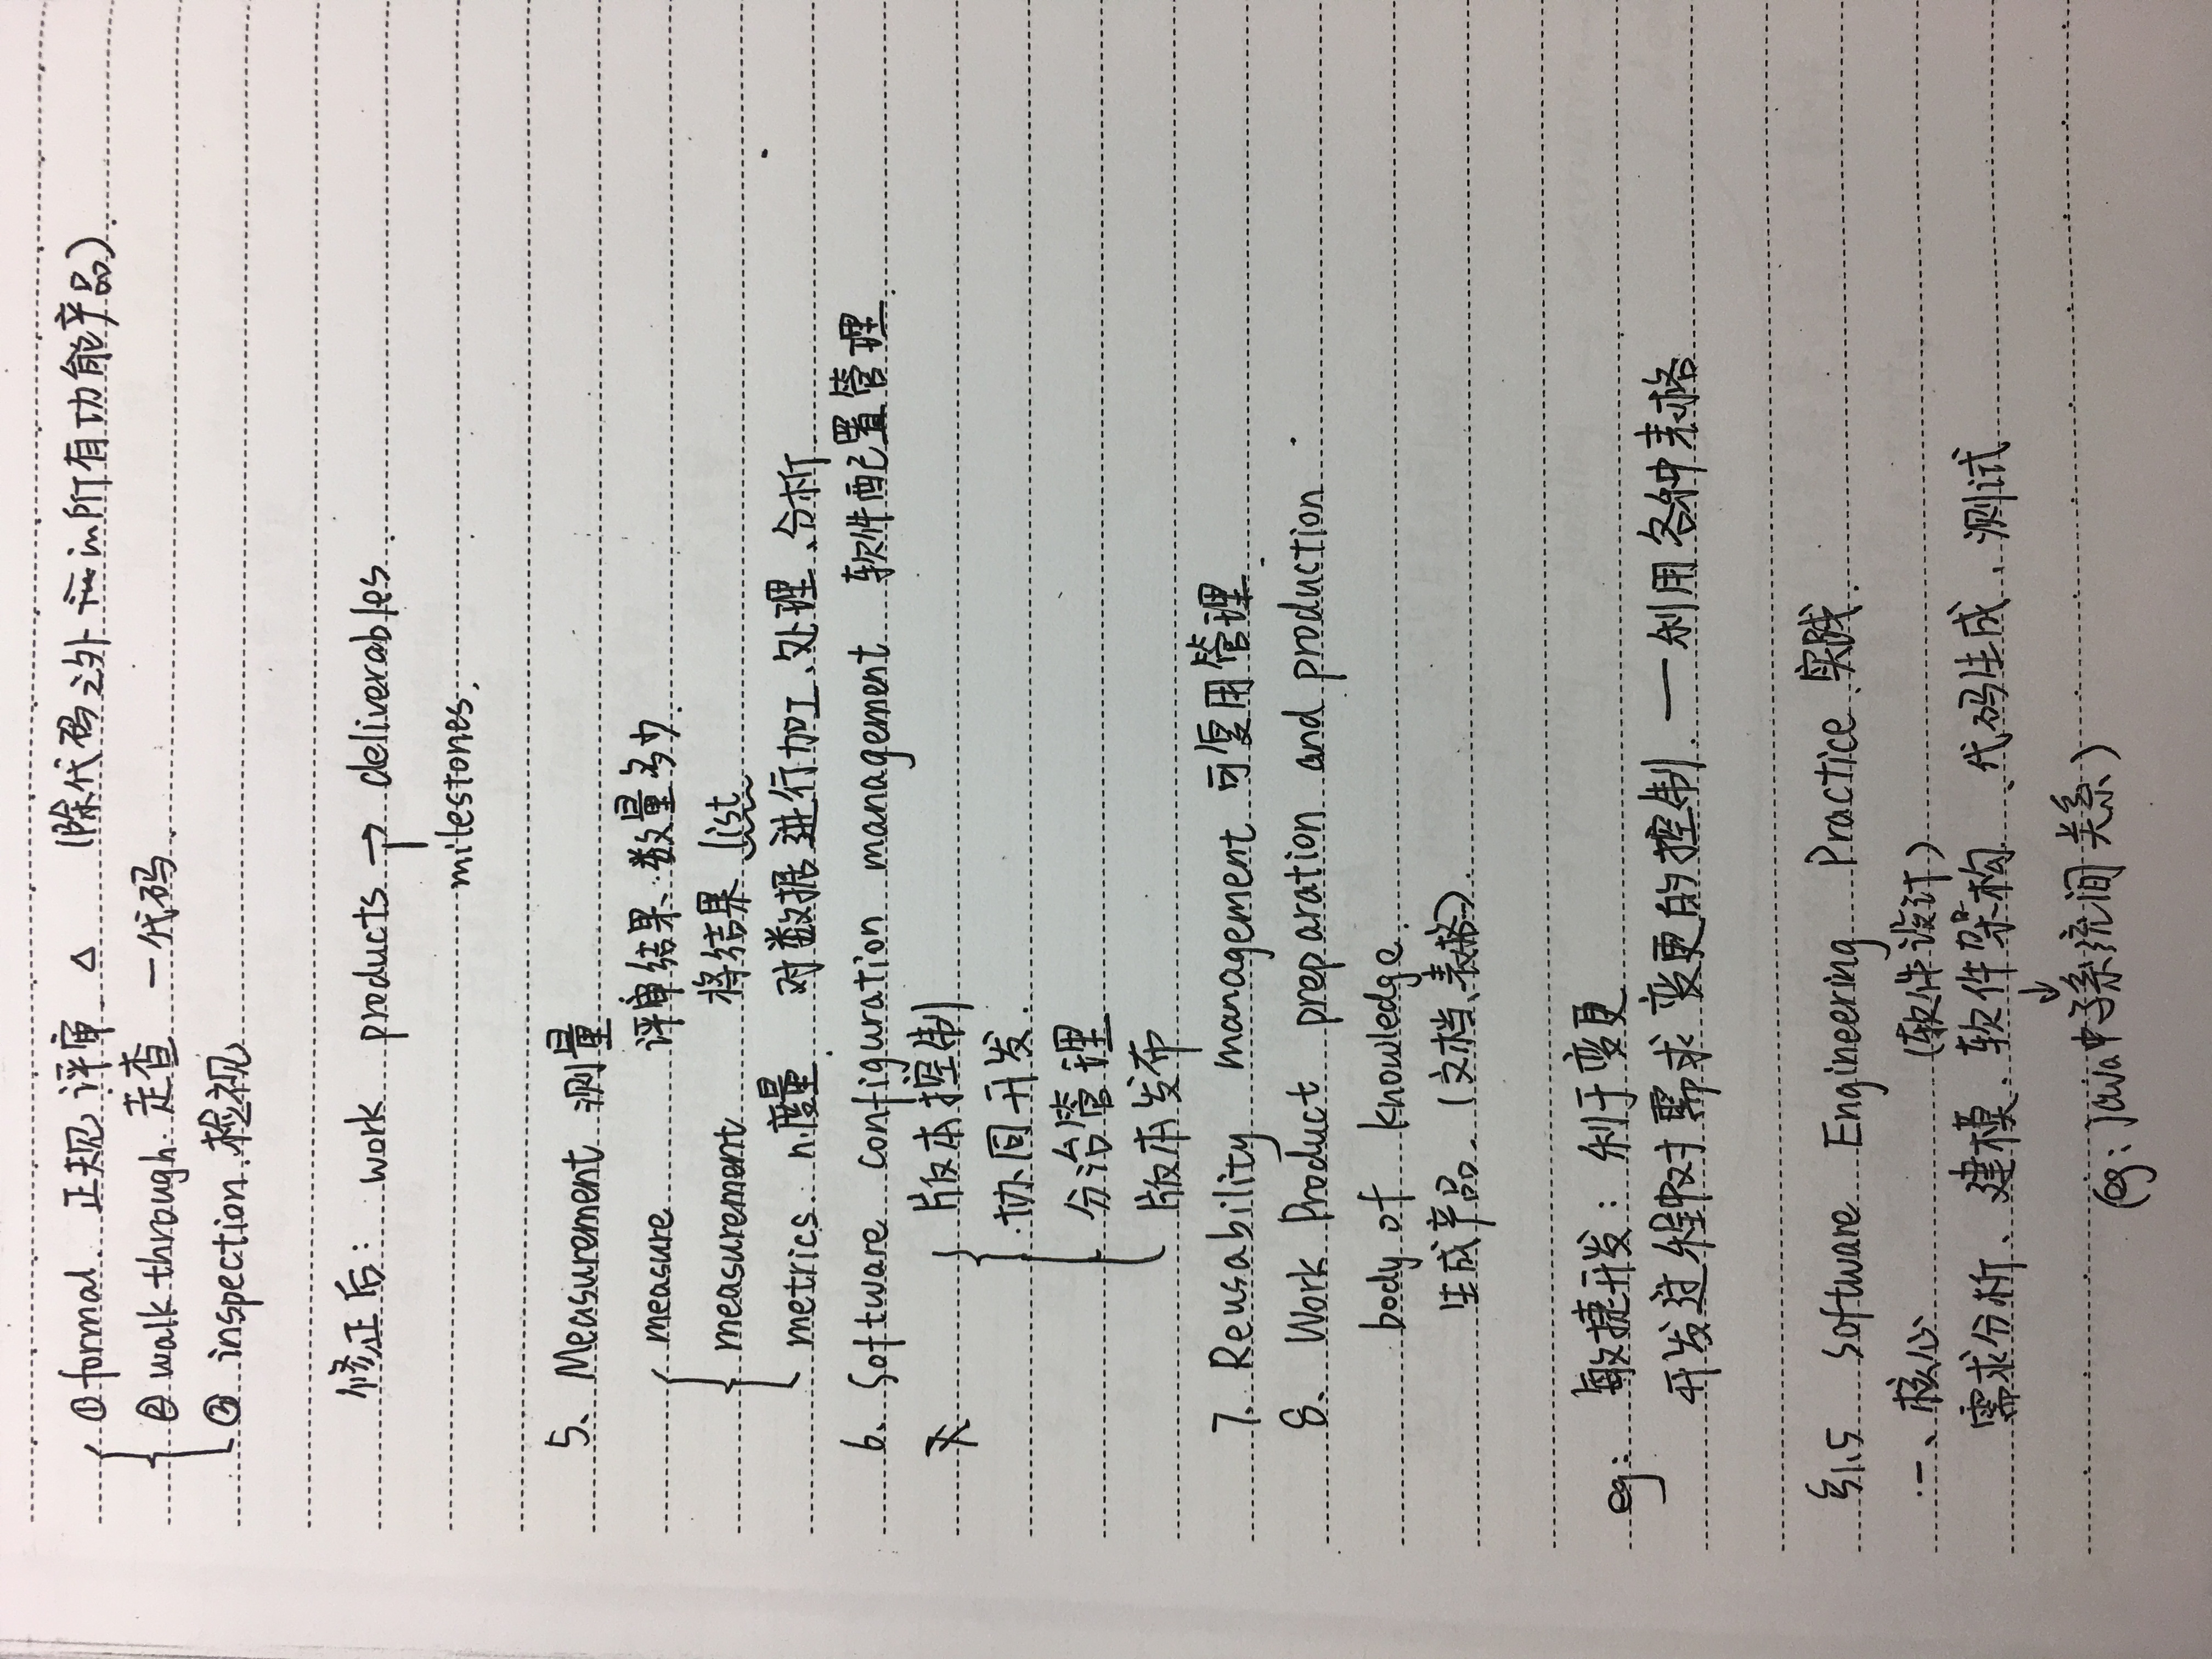 ① formal. 正规 评审 △ (除代码之外 所有功能产品).
② walk through. 走查 — 代码.
③ inspection. 检视
修正后: work products → deliverables.
milestones.
5、Measurement 测量
measure 评审结果、数量多少.
measurement 将结果 list
metrics n.度量. 对数据进行加工、处理、分析
6、Software configuration management 软件配置管理.
版本控制
协同开发.
分治管理
版本发布
7、Reusability management 可复用管理.
8、Work Product preparation and production
body of knowledge.
生成产品. (文档、表格).
eg: 敏捷开发: 利于变更
开发过程中对需求变更的控制. — 利用各种表格
§1.5 Software Engineering Practice. 实践.
一、核心 (软件设计)
需求分析、建模、软件架构、代码生成、测试
↓
(eg: Java中子系统间关系)